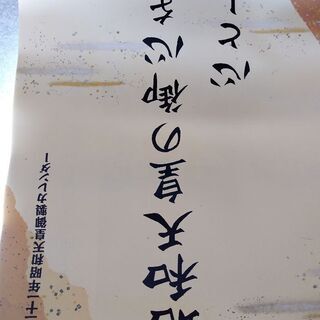 十一年昭和天皇御製カレンダー
昭和天皇の御心を
心と